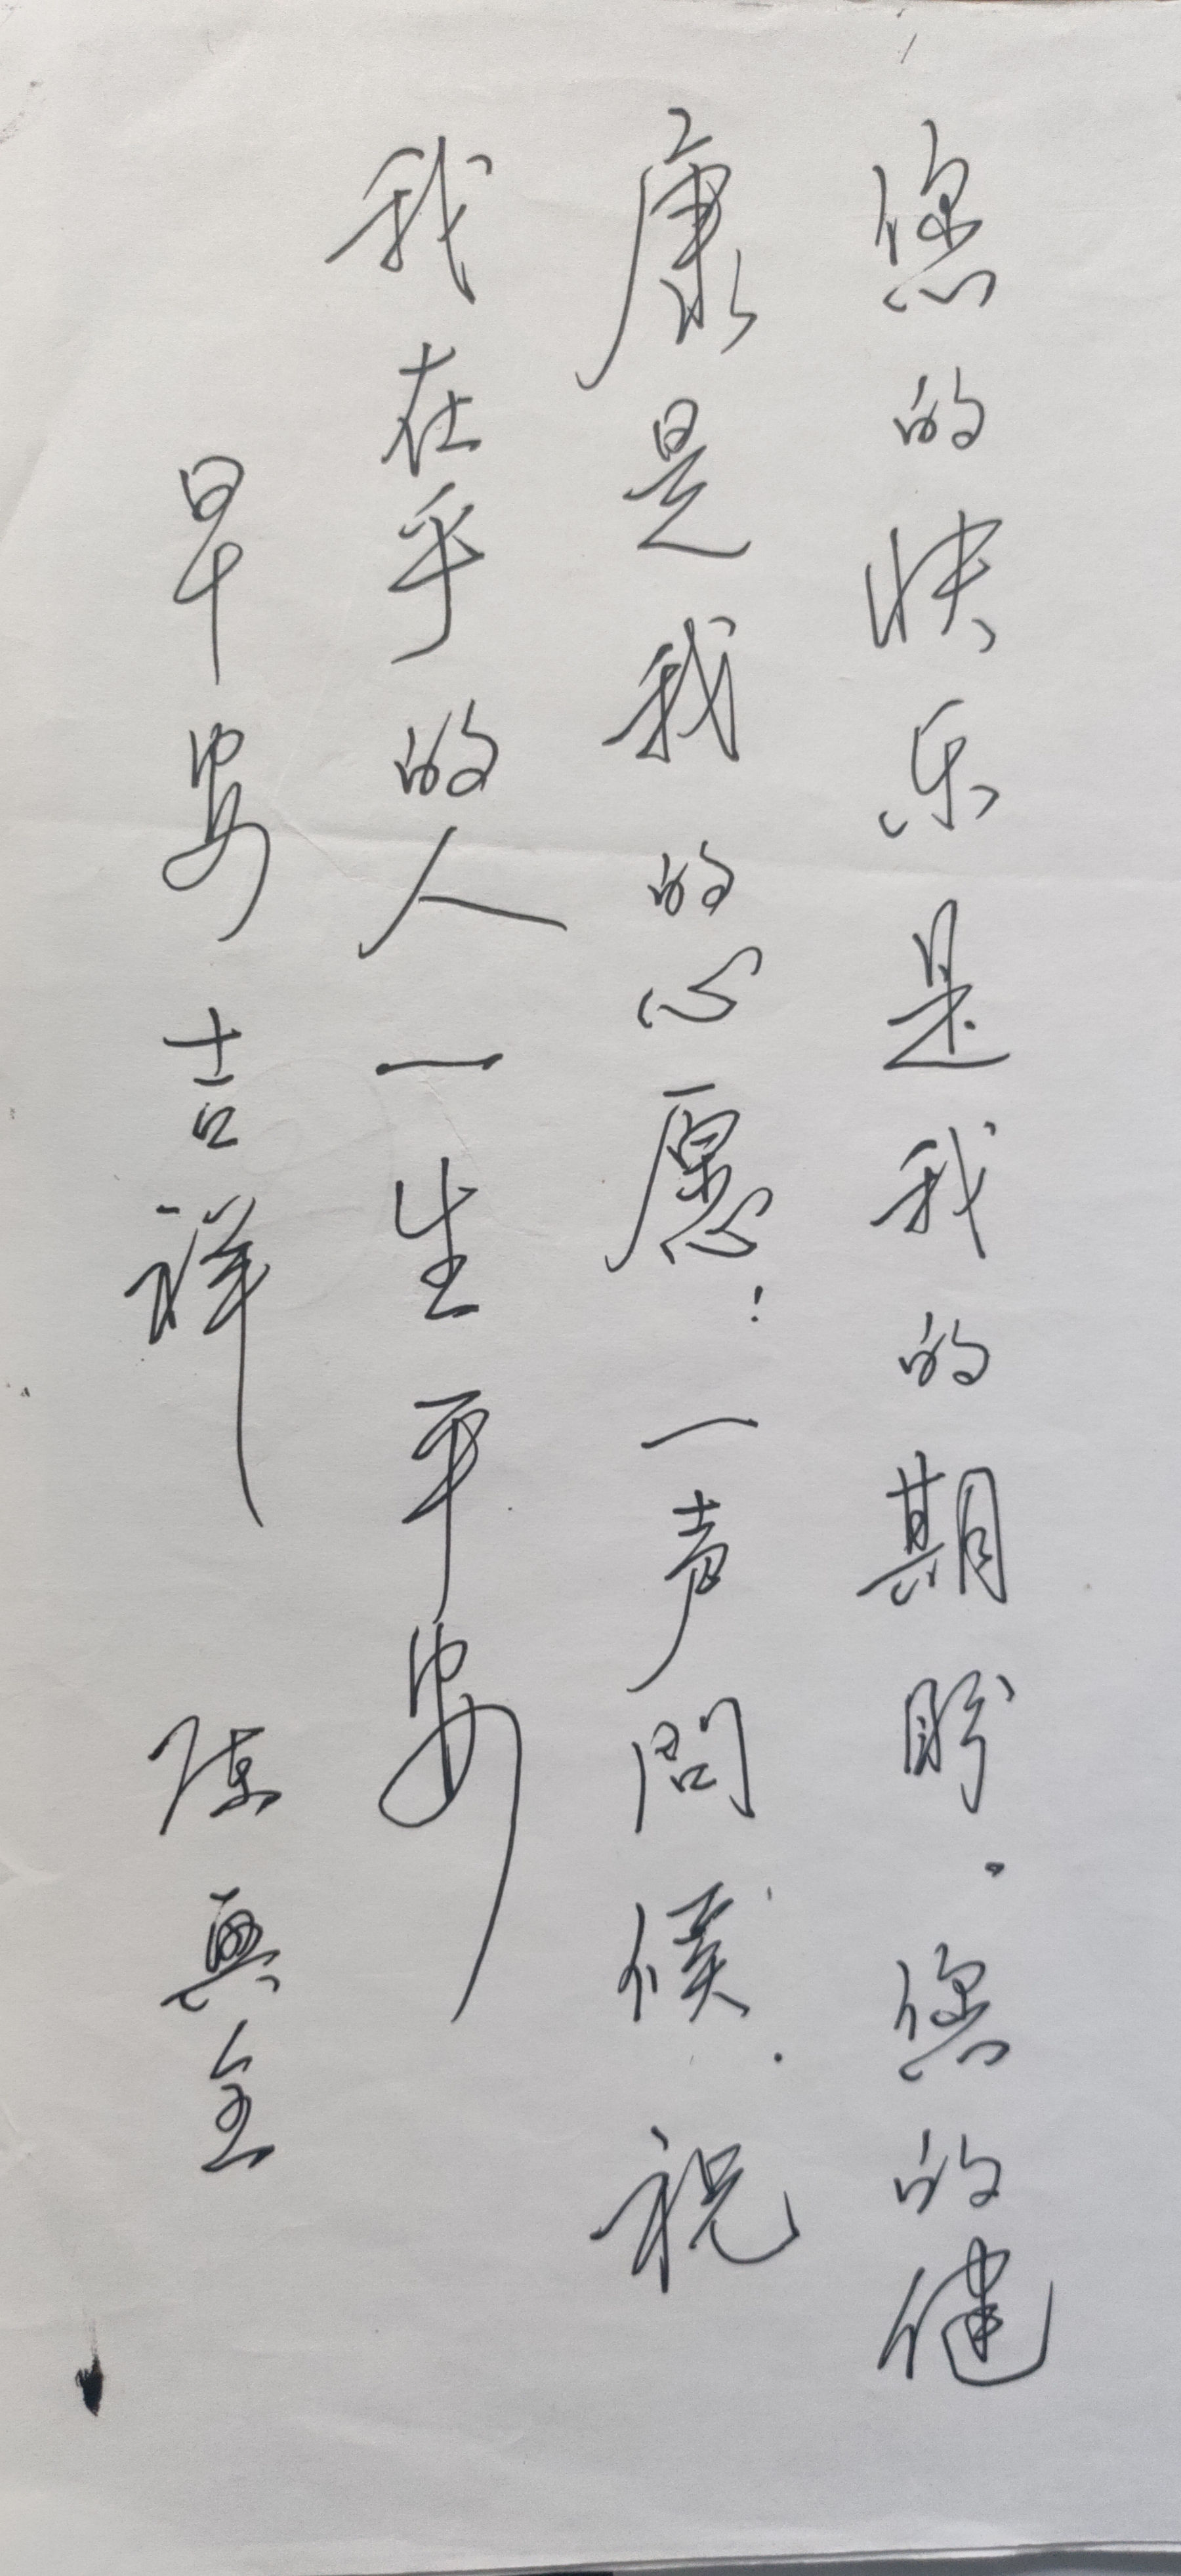 您的快乐是我的期盼.您的健
康是我的心愿!一声問候.祝
我在乎的人一生平安
早安吉祥 陈興全